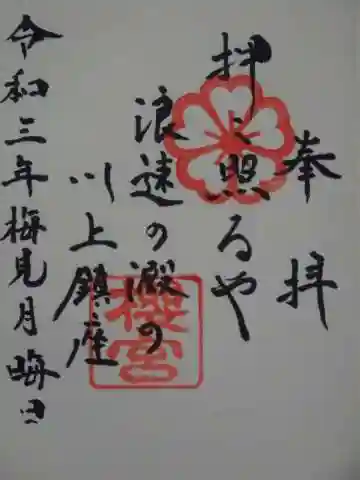 奉拝
押し照るや
浪速の澱の
川上鎮座
櫻宮
令和三年梅見月晦日